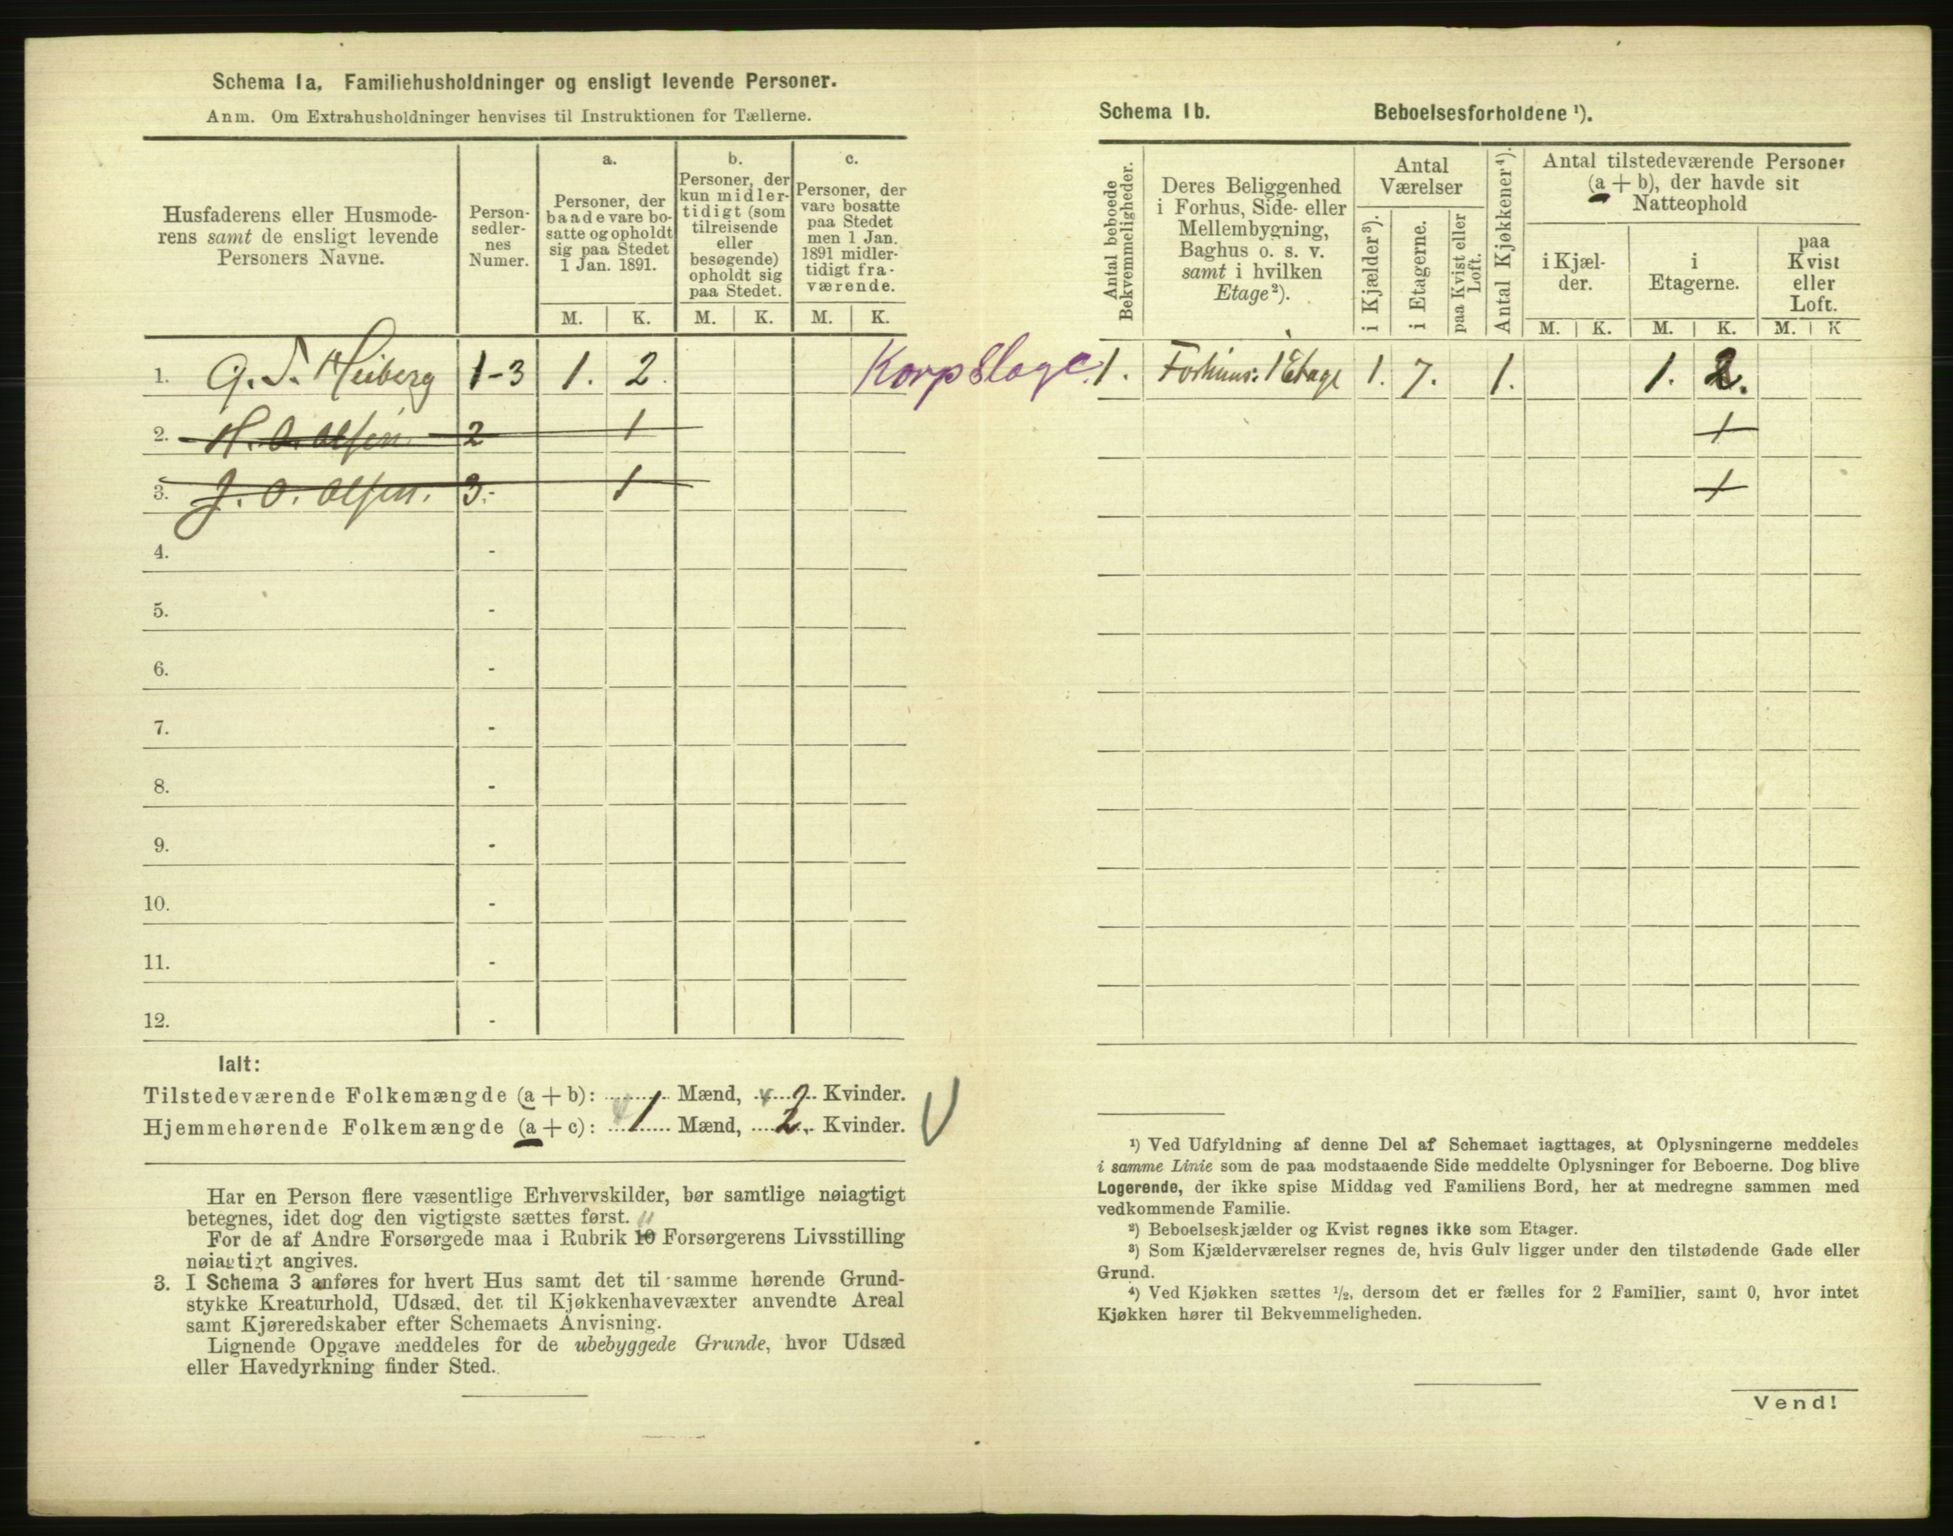 Schema 1a. Familiehusholdninger og ensligt levende Personer.
Anm. Om Extrahusholdninger henvises til Instruktionen for Tællerne.
Husfaderens eller Husmode-
rens samt de ensligt levende
Personers Navne.
Person-
sedler-
nes
Numer.
a.
Personer, der
baade vare bo-
satte og opholdt
sig paa Stedet
1 Jan. 1891.
b.
Personer, der
kun midler-
tidigt (som
tilreisende
eller
besøgende)
opholdt sig
paa Stedet.
c.
Personer, der
vare bosatte
paa Stedet
men 1 Jan.
1891 midler-
tidigt fra-
værende.
M. K. M. K. M. K.
1. G. T. Heiberg 1-3 1. 2. Korpslæge.
2. H. O. Olsen 2 1
3. J. O. Olsen. 3.- 1
4. -
5. -
6. -
7. -
8. -
9. -
10. -
11. -
12. -
Ialt:
Tilstedeværende Folkemængde (a + b): 1 Mænd, 2 Kvinder.
Hjemmehørende Folkemængde (a + c): 1 Mænd, 2 Kvinder.
Har en Person flere væsentlige Erhvervskilder, bør samtlige nøiagtigt
betegnes, idet dog den vigtigste sættes først.
For de af Andre Forsørgede maa i Rubrik 10 Forsørgerens Livsstilling
11
nøiagtigt angives.
3. I Schema 3 anføres for hvert Hus samt det til samme hørende Grund-
stykke Kreaturhold, Udsæd, det til Kjøkkenhavevæxter anvendte Areal
samt Kjøreredskaber efter Schemaets Anvisning.
Lignende Opgave meddeles for de ubebyggede Grunde, hvor Udsæd
eller Havedyrkning finder Sted.
Schema 1b. Beboelsesforholdene ¹).
Antal beboede
Bekvemmeligheder.
Deres Beliggenhed
i Forhus, Side- eller
Mellembygning,
Baghus o. s. v.
samt i hvilken
Etage²).
Antal
Værelser
i Kjælder³).
i Etagerne.
paa Kvist eller
Loft.
Antal Kjøkkener⁴).
Antal tilstedeværende Personer
(a + b), der havde sit
Natteophold
i Kjæl-
der.
i
Etagerne.
paa
Kvist
eller
Loft.
M. K. M. K. M. K
1. Forhus: 1 Etage 1. 7. 1. 1. 2.
1
1
¹) Ved Udfyldning af denne Del af Schemaet iagttages, at Oplysningerne meddeles
i samme Linie som de paa modstaaende Side meddelte Oplysninger for Beboerne. Dog blive
Logerende, der ikke spise Middag ved Familiens Bord, her at medregne sammen med
vedkommende Familie.
²) Beboelseskjælder og Kvist regnes ikke som Etager.
³) Som Kjælderværelser regnes de, hvis Gulv ligger under den tilstødende Gade eller
Grund.
⁴) Ved Kjøkken sættes ½, dersom det er fælles for 2 Familier, samt 0, hvor intet
Kjøkken hører til Bekvemmeligheden.
Vend!